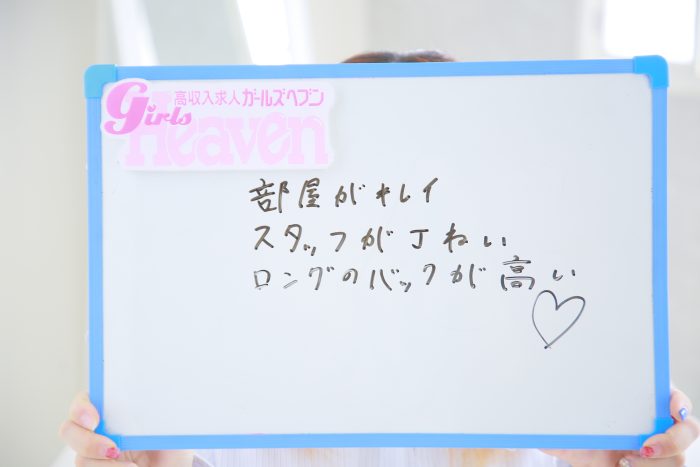 高収入求人ガールズヘブン
Girls
Heaven
部屋がキレイ
スタッフが丁ねい
ロングのバックが高い